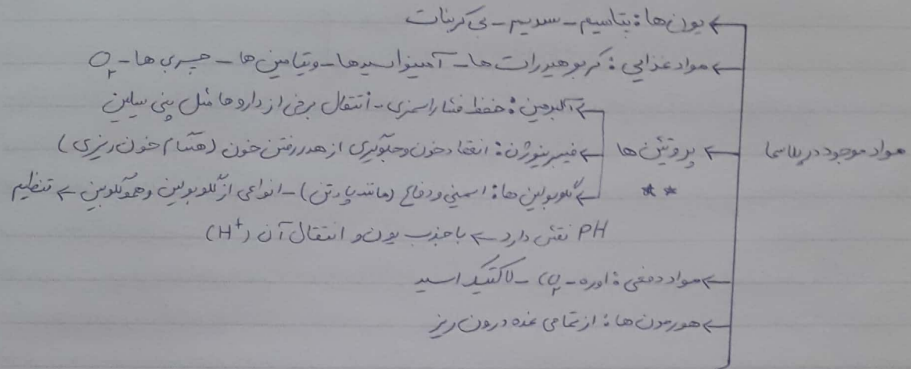 مواد موجود در پلاسما
← یون ها: پتاسیم - سدیم - بی کربنات
← مواد غذایی: کربوهیدرات ها - آمینواسیدها - ویتامین ها - چربی ها - O₂
← پروتئین ها **
← آلبومین: حفظ فشار اسمزی - انتقال برخی از داروها مثل پنی سیلین
← فیبرینوژن: انعقاد خون و جلوگیری از هدر رفتن خون (هنگام خون ریزی)
← گلوبولین ها: ایمنی و دفاع (مانند پادتن) - انواعی از گلوبولین و هموگلوبین ← تنظیم
PH نقش دارد ← با جذب یون و انتقال آن (H⁺)
← مواد دفعی: اوره - CO₂ - لاکتیک اسید
← هورمون ها: از تمامی غدد درون ریز